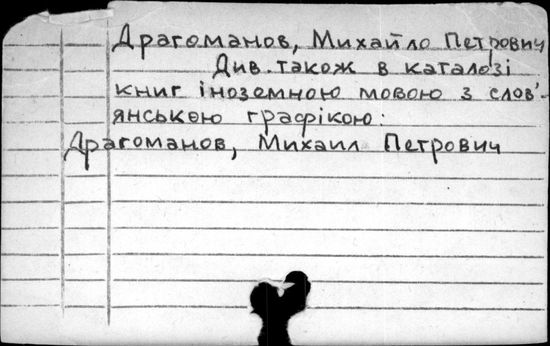 Драгоманов, Михайло Петрович
Див. також в каталозі
книг іноземною мовою з слов'-
янською графікою:
Драгоманов, Михаил Петрович